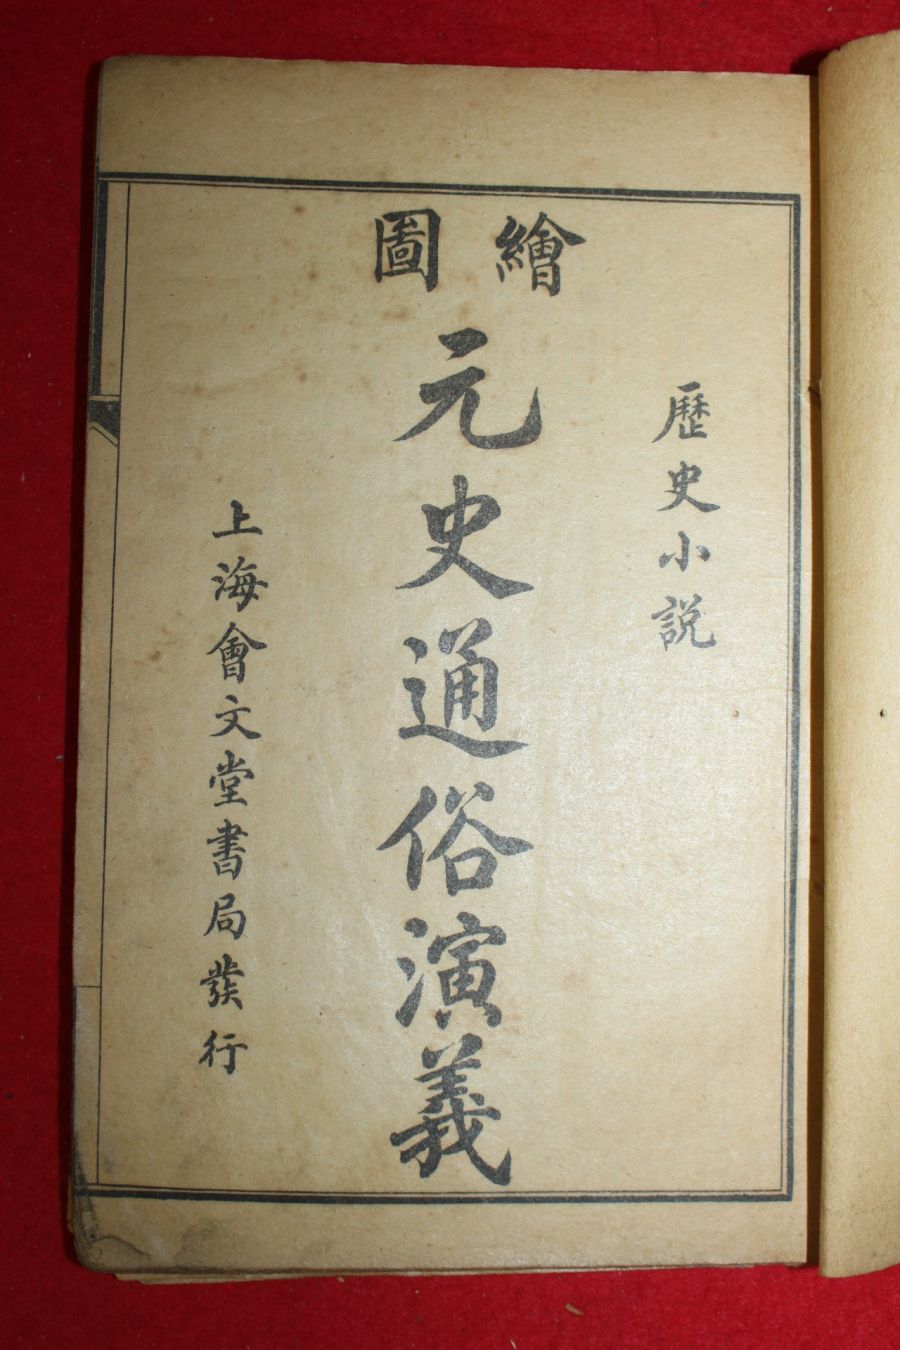 歷史小説
繪圖
元史通俗演義
上海會文堂書局發行